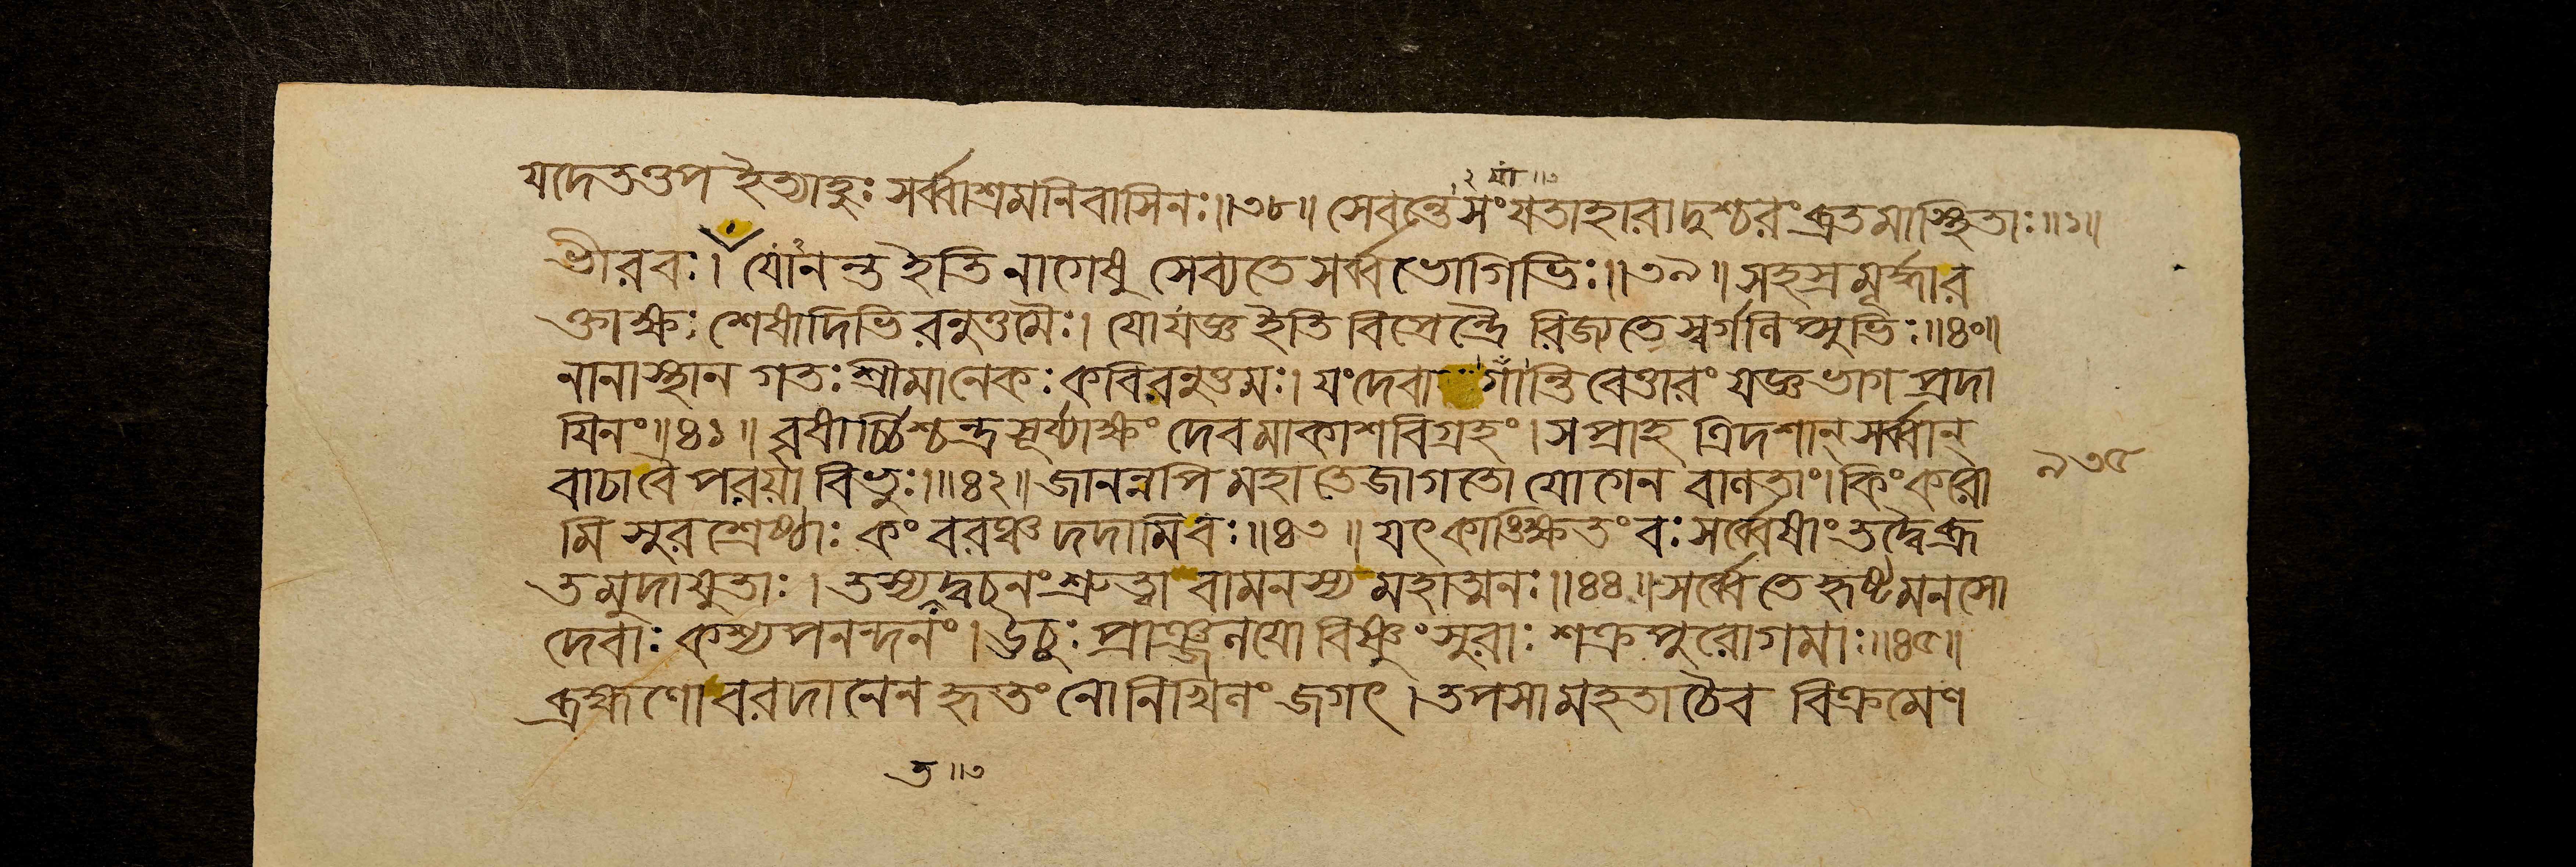 যদেতত্তপ ইত্যাহুঃ সর্ব্বাশ্রমনিবাসিনঃ॥৩৮॥ সেবন্তে সংযতাহারা দুশ্চরং ব্রতমাস্থিতাঃ॥১॥
২ যাঁ॥৩
ভীরবঃ। যোনন্ত ইতি নাগেষু সেব্যতে সর্ব্বভোগিভিঃ॥৩৯॥ সহস্রমূর্দ্ধার
ক্তাক্ষঃ শেষাদিভিরনুত্তমৈঃ। যো যজ্ঞ ইতি বিপ্রেন্দ্রৈ রিজ্যতে স্বর্গলিপ্সুভিঃ॥৪০॥
নানাস্থান গতঃ শ্রীমানেকঃ কবিরনুত্তমঃ। যং দেবা গান্তি বেত্তারং যজ্ঞভাগ প্রদা
যিনং॥৪১॥ বৃষার্চ্চিশ্চন্দ্রসূর্য্যাক্ষং দেবমাকাশবিগ্রহং। স প্রাহ ত্রিদশান্ সর্ব্বান্
বাচা বৈ পরয়া বিভুঃ।॥৪২॥ জানন্নপি মহাতেজা গতো যোগেন বালতাং। কিং করো
৯৩৫
মি সুরশ্রেষ্ঠাঃ কং বরঞ্চ দদামি বঃ॥৪৩॥ যৎ কাঙ্ক্ষিতং বঃ সর্ব্বেষাং তদ্বৈ ব্রূ
ত মুদাযুতাঃ। তস্য তদ্বচনং শ্রুত্বা বামনস্য মহাত্মনঃ॥৪৪॥ সর্ব্বে তে হৃষ্টমনসো
দেবাঃ কশ্যপনন্দনং। ঊচুঃ প্রাঞ্জলয়ো বিষ্ণুং সুরাঃ শক্রপুরোগমাঃ॥৪৫॥
ব্রহ্মণো বরদানেন হৃতং নো নিখিলং জগৎ। তপসা মহতা চৈব বিক্রমেণ
ত॥৩